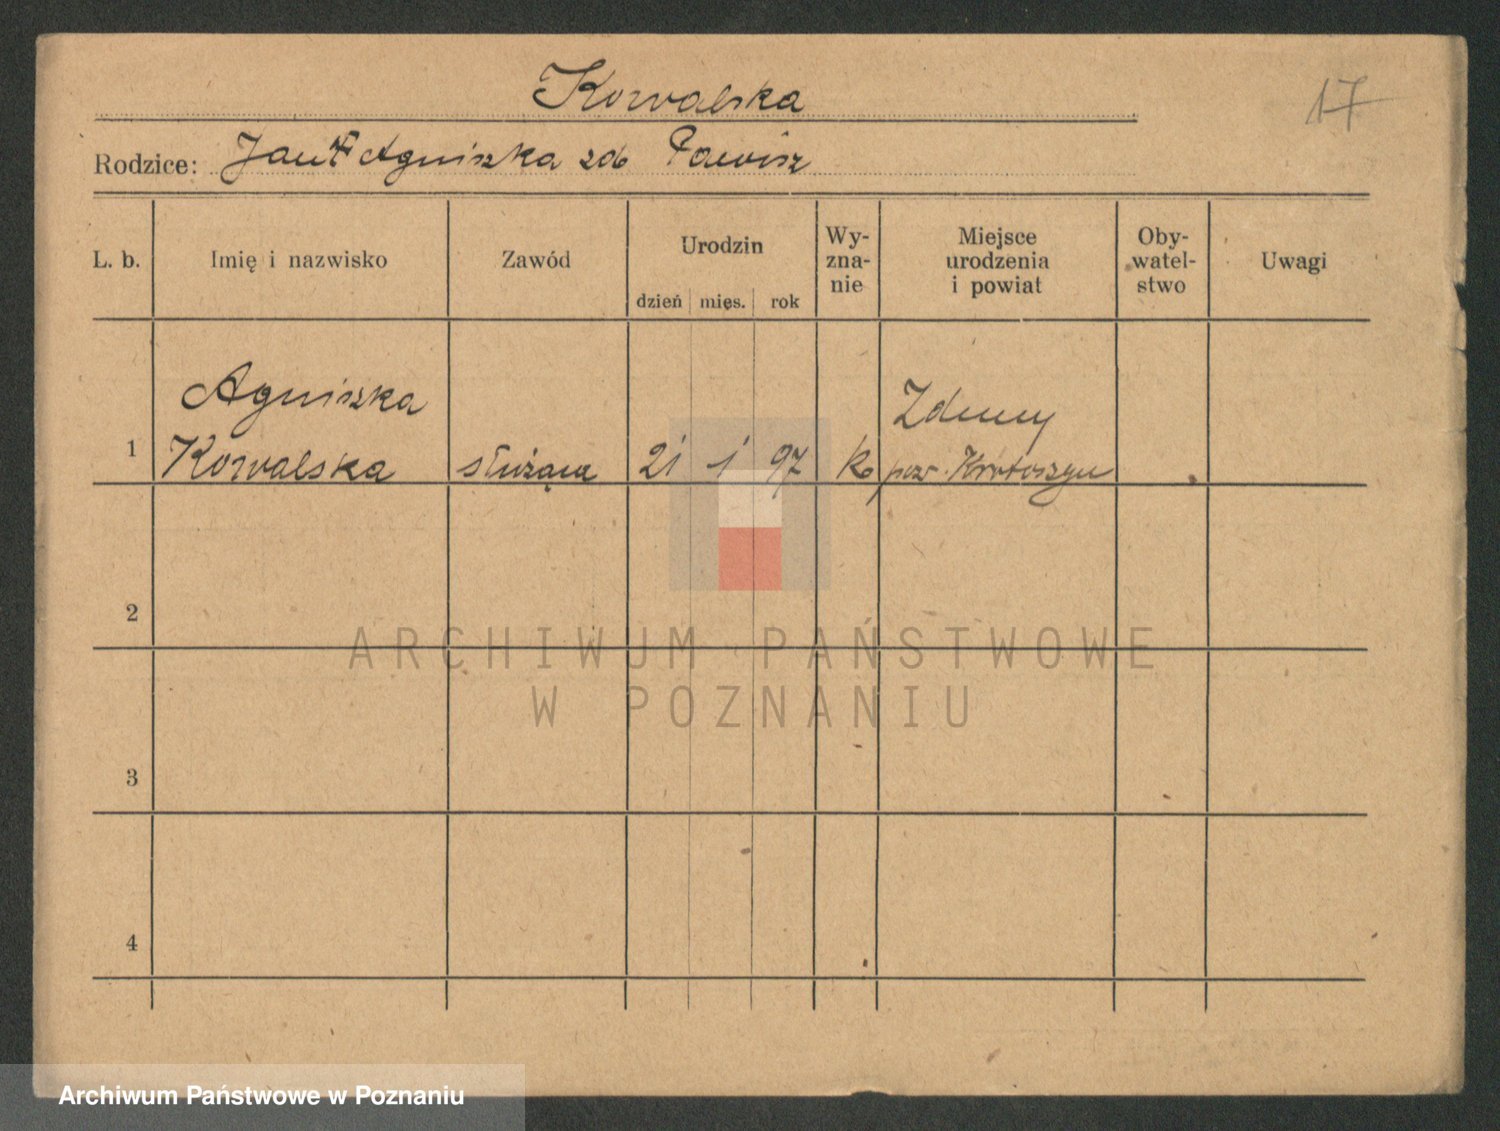 Kowalska
17
Rodzice: Jan Agniszka zd
L. b. Imię i nazwisko Zawód Urodzin dzień mięs. rok Wy-zna-nie Miejsce urodzenia i powiat Oby-watel-stwo Uwagi
Agniszka Zduny
1 Kowalska służąca 21 1 97 k pow. Krotoszyn
2
ARCHIWUM PAŃSTWOWE
W POZNANIU
3
4
Archiwum Państwowe w Poznaniu